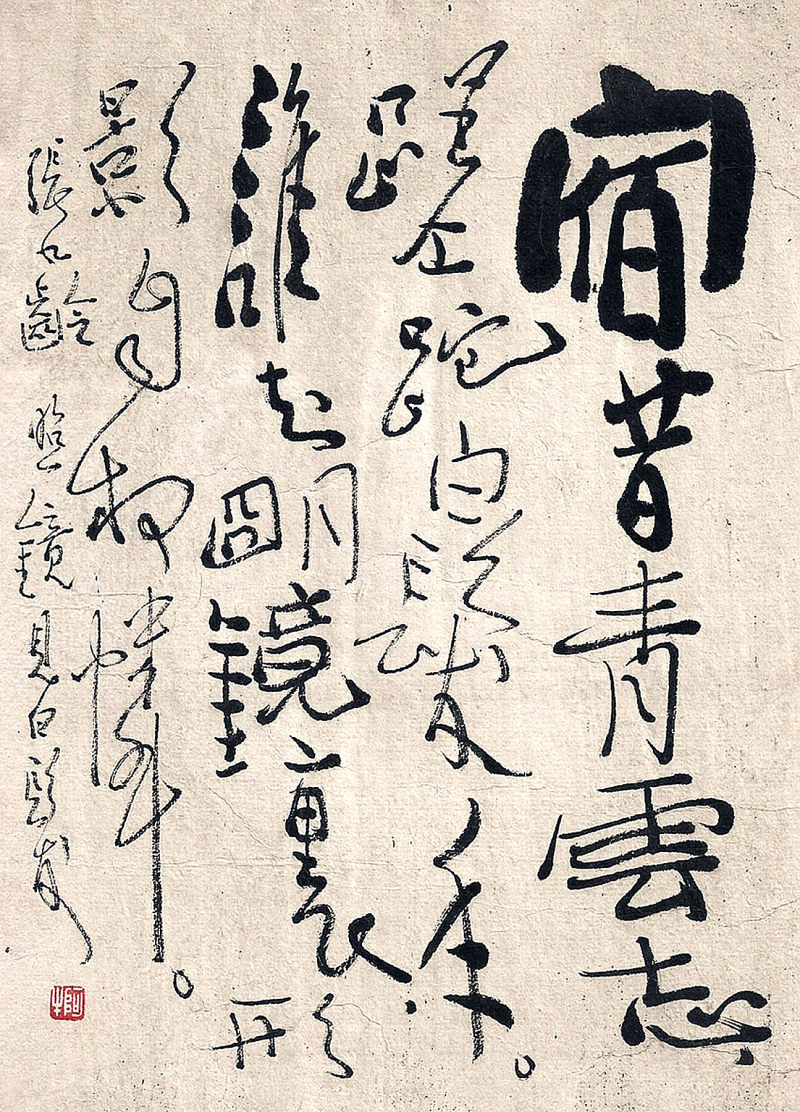 宿昔青雲志
蹉跎白髮年。
誰知朙鏡裏形
影自相憐。
張九齡 照鏡見白髮